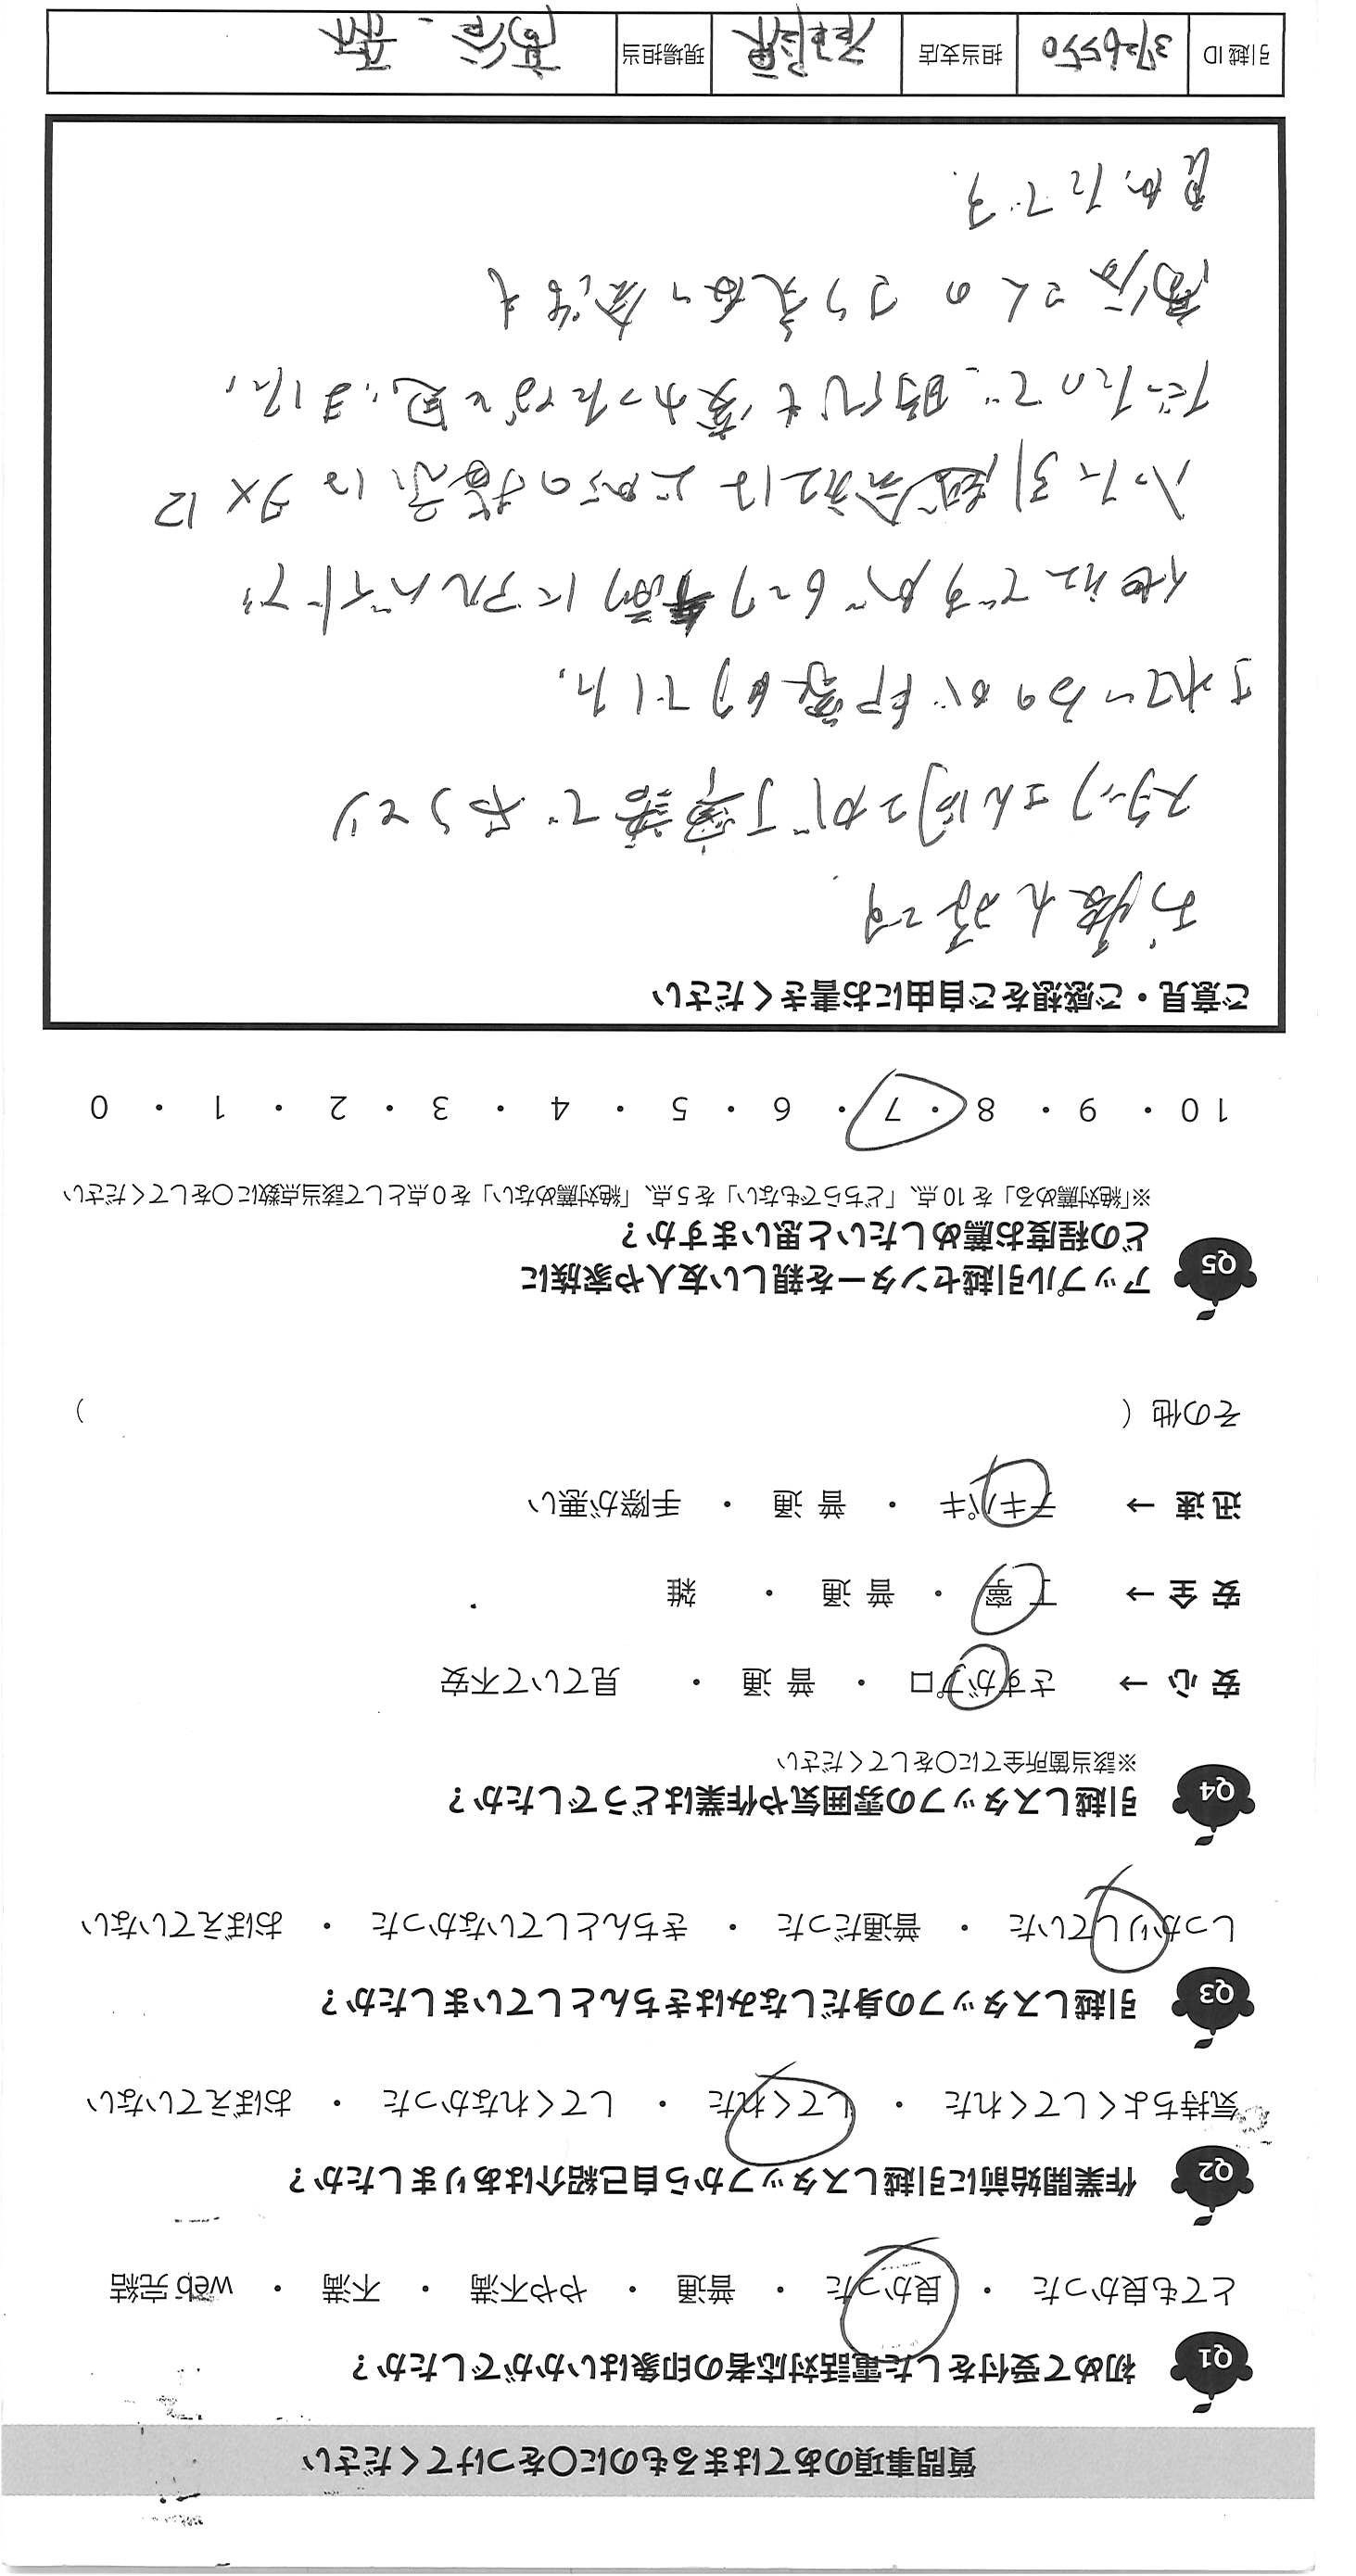 質問事項のあてはまるものに○をつけてください
Q1 初めて受付をした電話対応者の印象はいかがでしたか？
とても良かった ・ 良かった ・ 普通 ・ やや不満 ・ 不満 ・ web 完結
Q2 作業開始前に引越しスタッフから自己紹介はありましたか？
気持ちよくしてくれた ・ してくれた ・ してくれなかった ・ おぼえていない
Q3 引越しスタッフの身だしなみはきちんとしていましたか？
しっかりしていた ・ 普通だった ・ きちんとしていなかった ・ おぼえていない
Q4 引越しスタッフの雰囲気や作業はどうでしたか？
※該当箇所全てに○をしてください
安 心 → さすがプロ ・ 普 通 ・ 見ていて不安
安 全 → 丁 寧 ・ 普 通 ・ 雑
迅 速 → テキパキ ・ 普 通 ・ 手際が悪い
その他（ ）
Q5 アップル引越センターを親しい友人や家族に
どの程度お薦めしたいと思いますか？
※「絶対薦める」を 10 点、「どちらでもない」を 5 点、「絶対薦めない」を 0 点として該当点数に○をしてください
10 ・ 9 ・ 8 ・ 7 ・ 6 ・ 5 ・ 4 ・ 3 ・ 2 ・ 1 ・ 0
ご意見・ご感想をご自由にお書きください
お疲れ様です
スタッフさん同士が丁寧語でやりとり
されているのが印象的でした。
他社ですが6〜7年前にアルバイトで
入った引越会社は上からの指示はダメ口
だったので、時代も変わったなと思いました。
さんの つり支柱の会話も
良かったです。
引越 ID 3726550 担当支店 現場担当